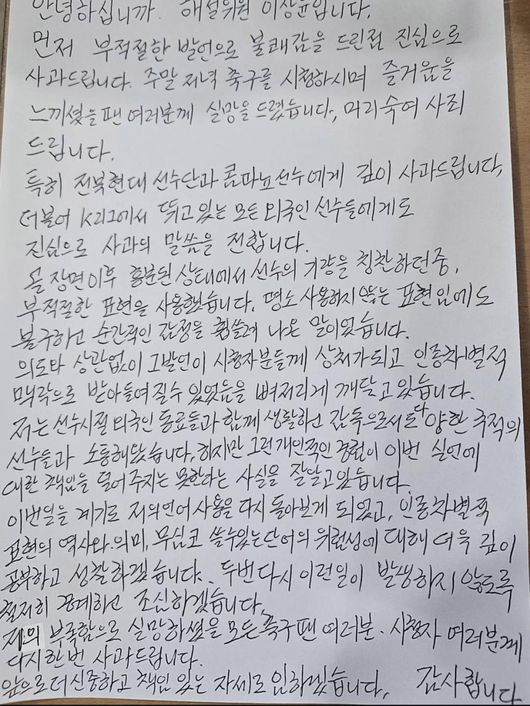 안녕하십니까. 해설위원 이상윤입니다.
먼저 부적절한 발언으로 불쾌감을 드린점 진심으로
사과드립니다. 주말 저녁 축구를 시청하시며 즐거움을
느끼셨을 팬 여러분께 실망을 드렸습니다. 머리숙여 사죄
드립니다.
특히 전북현대 선수단과 콤파뇨선수에게 깊이 사과드립니다,
더불어 K리그에서 뛰고 있는 모든 외국인 선수들에게도
진심으로 사과의 말씀을 전합니다.
골 장면이후 흥분된 상태에서 선수의 기량을 칭찬하던중,
부적절한 표현을 사용했습니다. 평소 사용하지 않는 표현임에도
불구하고 순간적인 감정을 휩쓸려 나온 말이었습니다.
의도타 상관없이 그발언이 시청자분들께 상처가되고 인종차별적
맥락으로 받아들여질수 있었음을 뼈저리게 깨닫고 있습니다.
저는 선수시절 외국인 동료들과 함께 생활하고 감독으로서도 다양한 국적의
선수들과 소통해왔습니다. 하지만 그런 개인적인 경험이 이번 실언에
대한 책임을 덜어 주지는 못한다는 사실을 잘알고있습니다.
이번일을 계기로 저의언어 사용을 다시 돌아보게 되었고, 인종차별적
표현의 역사와 의미, 무심코 쓸수있는단어의 위험성에 대해 더욱 깊이
공부하고 성찰하겠습니다. 두번다시 이런일이 발생하지 않도록
철저히 경계하고 조심하겠습니다.
저의 부족함으로 실망하셨을 모든축구팬 여러분·시청자 여러분께
다시한번 사과드립니다.
앞으로 더 신중하고 책임 있는 자세로 임하겠습니다, 감사합니다